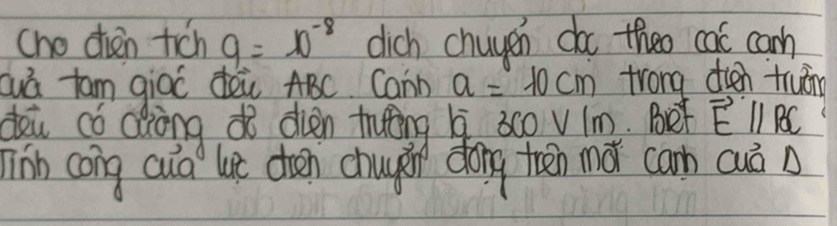 Cho điện tích q = 10⁻⁸ dịch chuyển dọc theo các cạnh
của tam giác đều ABC. Cạnh a = 10 cm trong điện trường
đều có cường độ điện trường là 300 V/m. Biết E⃗ // BC
Tính công của lực điện chuyển động trên mỗi cạnh của Δ